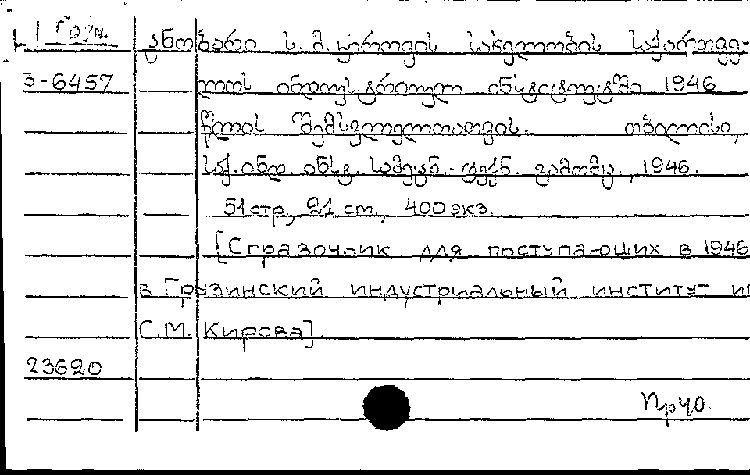 Груз.
ცნობარი ს. მ. კიროვის სახელობის საქართვე-
3-6457 ლოს ინდუსტრიულ ინსტიტუტში 1946
წლის შემსვლელთათვის. თბილისი,
საქ. ინდ. ინსტ. სამეცნ.-ტექნ. გამომც., 1946.
51 стр., 21 cm, 400 экз.
[Справочник для поступающих в 1946
в Грузинский индустриальный институт
С.М. Кирова].
23620